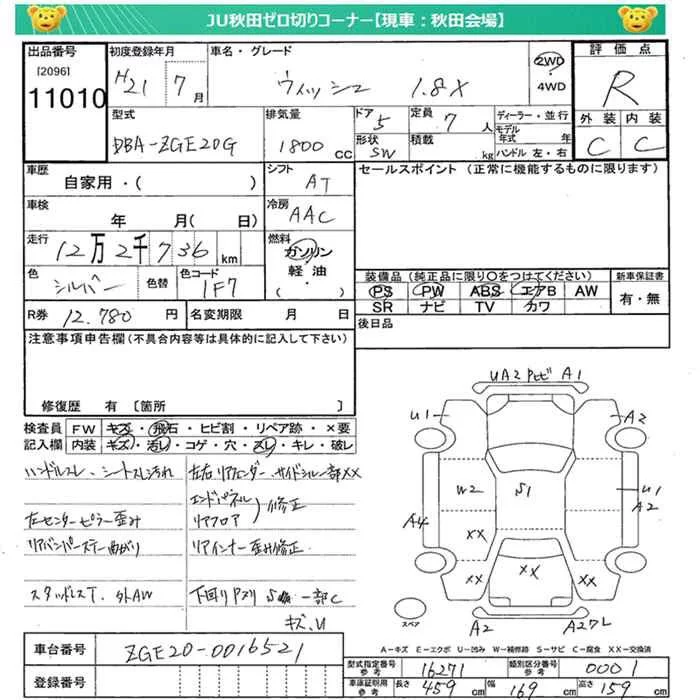 JU秋田ゼロ切りコーナー【現車：秋田会場】
出品番号 [2096] 11010
初度登録年月 H21 7月
車名・グレード ウィッシュ 1.8X
2WD ・ 4WD
評価点 R
外装 C 内装 C
型式 DBA-ZGE20G
排気量 1800 cc
ドア 5 形状 SW
定員 7 人 積載 kg
ディーラー・並行
モデル年式 年
ハンドル 左・右
車歴 自家用・( )
シフト AT
車検 年 月( 日)
冷房 AAC
走行 12万2千736 km
燃料 ガソリン 軽・油 ( )
色 シルバー 色替 色コード 1F7
セールスポイント (正常に機能するものに限ります)
装備品(純正品に限り○をつけてください)
PS PW ABS エアB AW
SR ナビ TV カワ
新車保証書 有・無
R券 12.780 円 名変期限 月 日
後日品
注意事項申告欄(不具合内容等は具体的に記入して下さい)
修復歴 有 [箇所 ]
検査員記入欄
FW キズ・飛石・ヒビ割・リペア跡・×要
内装 キズ・汚レ・コゲ・穴・スレ・キレ・破レ
ハンドルスレ、シートスレ汚れ
左センターピラー歪み
リアバンパーステー曲がり
スタッドレスT. 外AW
左右リアフェンダー、サイドシル一部XX
エンドパネル
リアフロア 修正
リアインナー歪み修正.
下回りPヌリ S 一部C
キズ、U
UA2 Pヒビ A1
U1
A2
W2
S1
U1
A2
A4
XX
XX
XX
XX
スペア
A2
A27L
A－キズ E－エクボ U－凹み W－補修跡 S－サビ C－腐食 XX－交換済
車台番号 ZGE20-0016521
登録番号
型式指定番号 参考 16271 類別区分番号 参考 0001
車庫証明用 参考 長さ 459 cm 幅 169 cm 高さ 159 cm